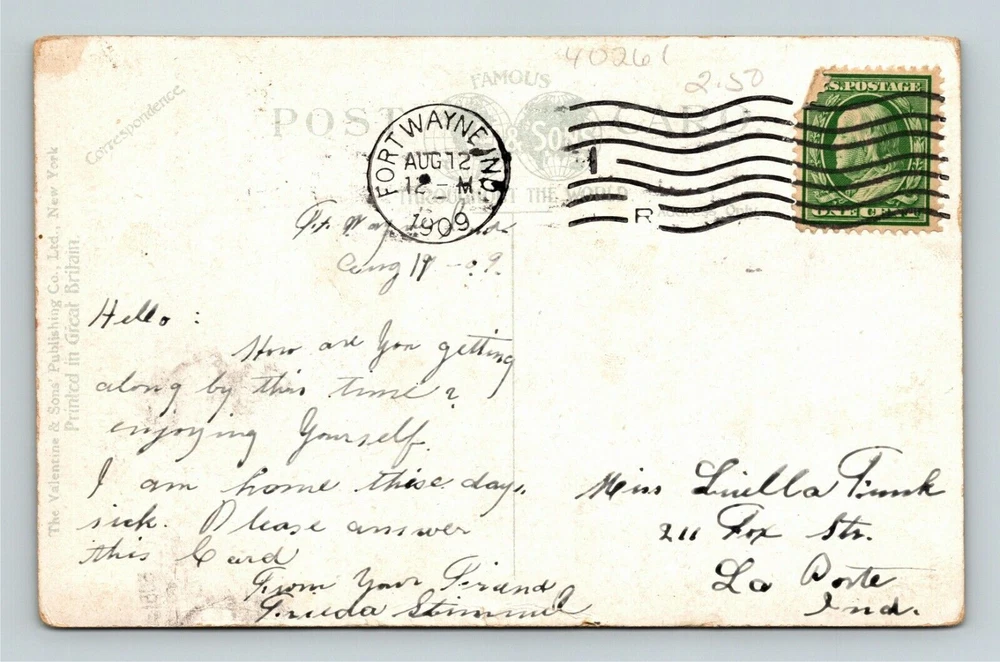 40261
2.50
FAMOUS
POST CARD
& Sons
THROUGHOUT THE WORLD
Correspondence.
The Valentine & Sons' Publishing Co., Ltd., New York
Printed in Great Britain.
FORT WAYNE, IND.
AUG 12
12 - M
1909
R
U.S. POSTAGE
ONE CENT
Ft. Wayne Ind.
Aug 19 - 09.
Hello :
How are You getting
along by this time?
enjoying Yourself.
I am home these days.
sick. Please answer
this Card
From Your Friend
Frieda Stimmel
Miss Luella Funk
211 Fox Str.
La Porte
Ind.